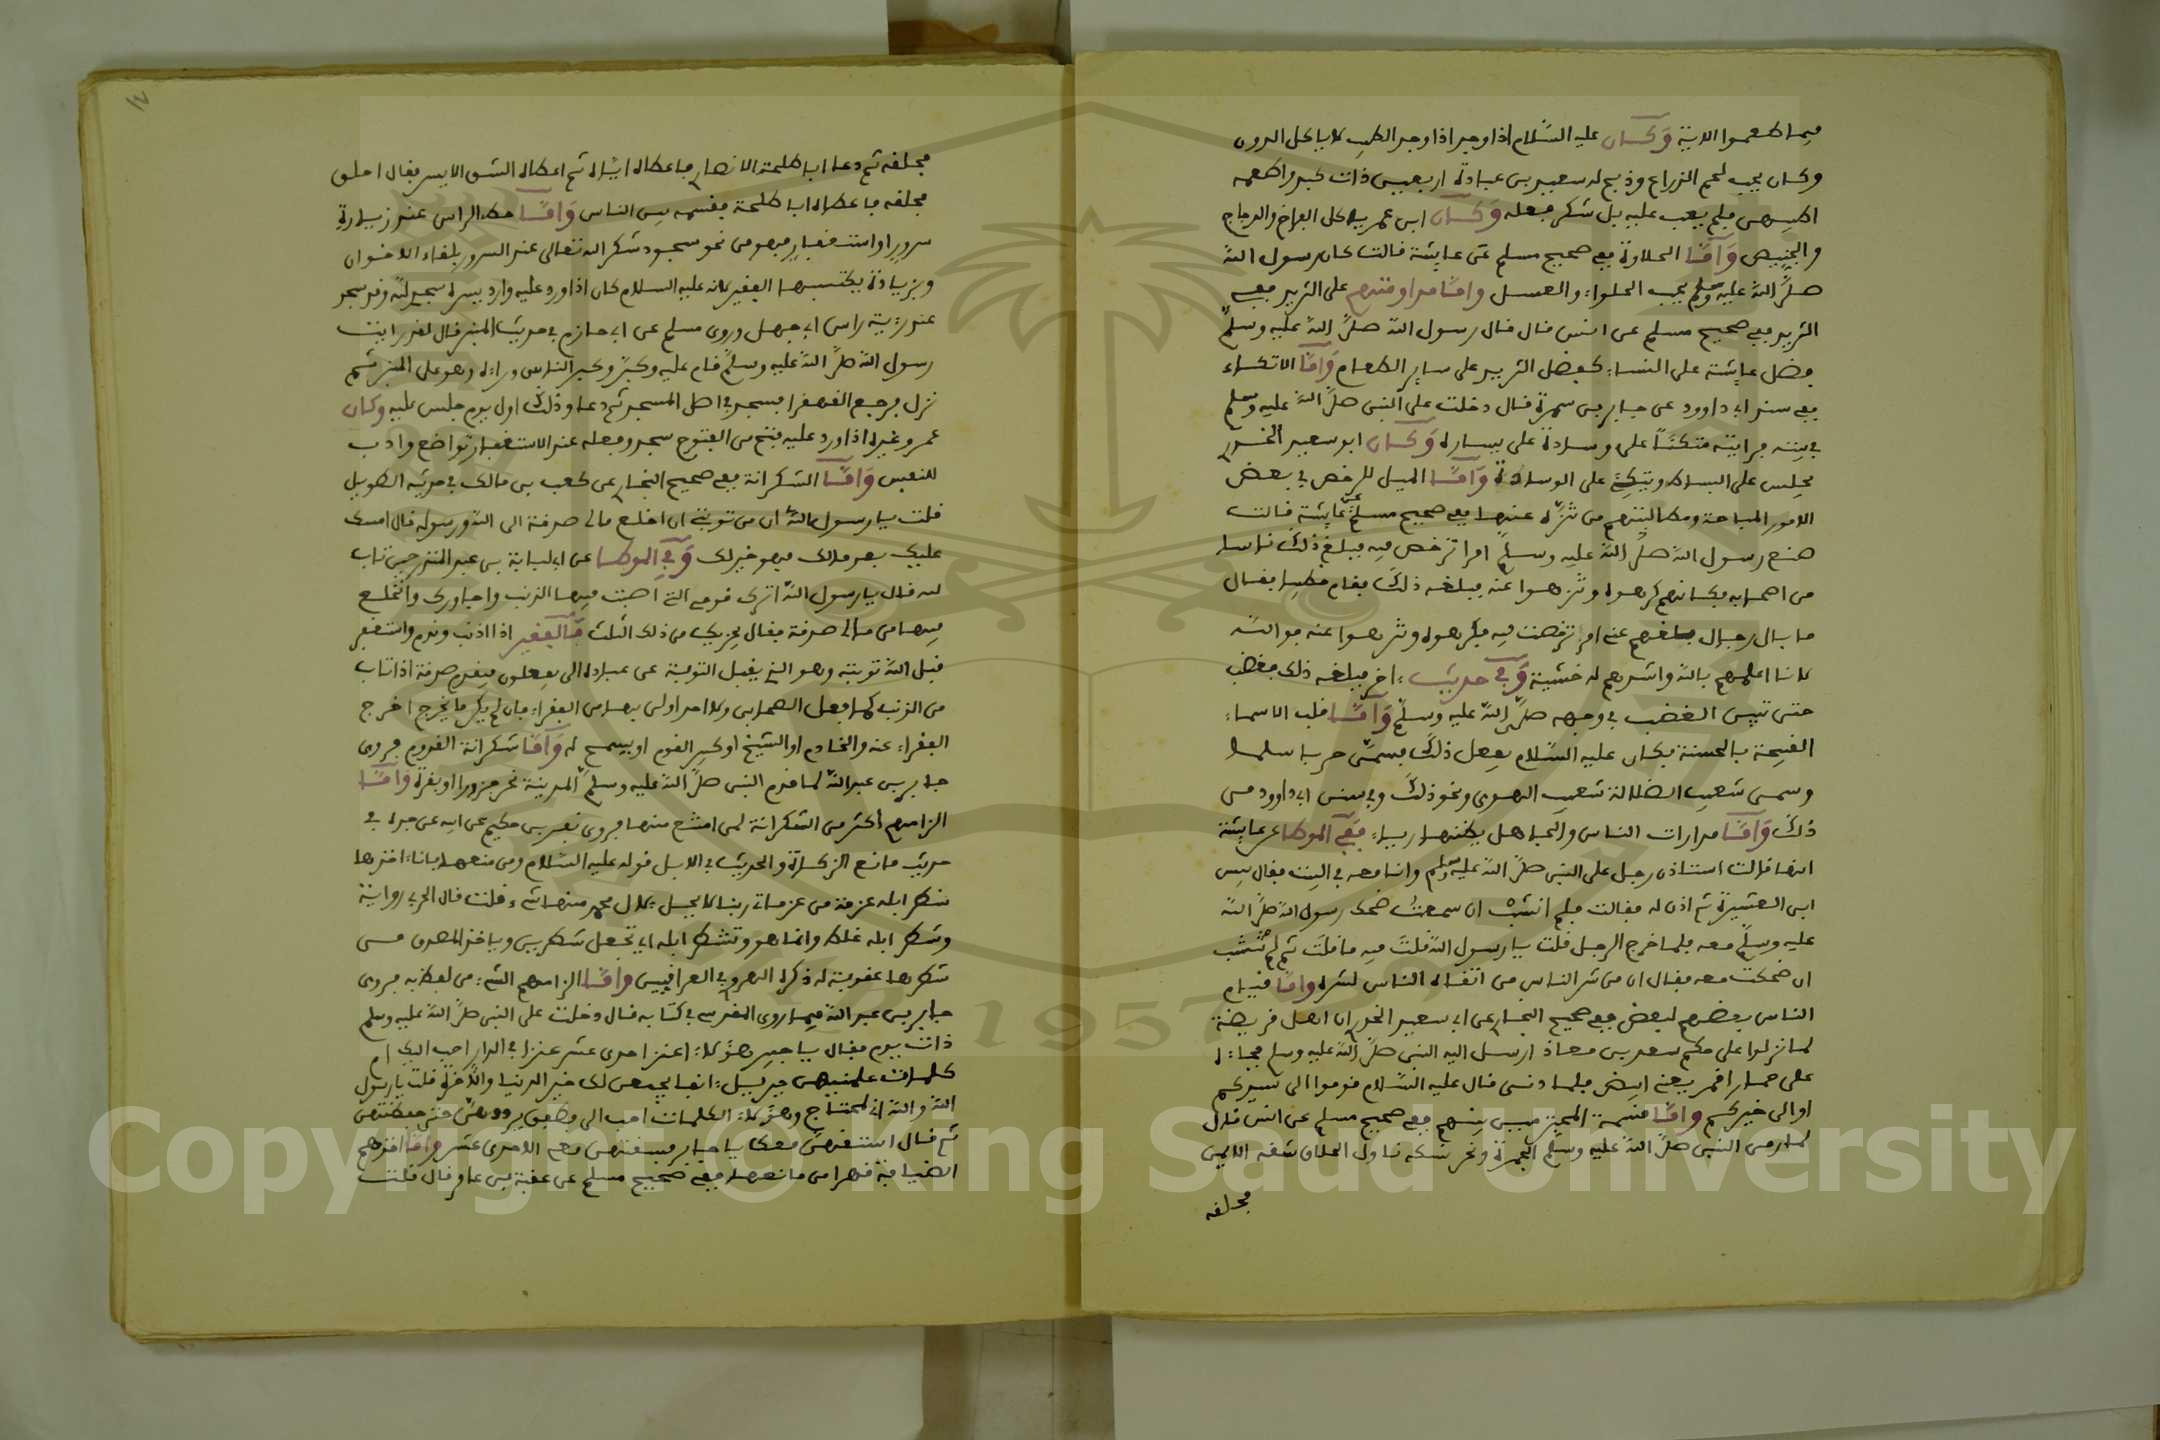 فيما طعموا الاية وكان عليه السلام اذا وجد اذا وجد الطيب لا ياكل الدون
وكان يحب لحم الذراع وذبح له سعد بن عبادة اربعين ذات كبد واطعمه
اكبدهن فلم يعب عليه بل شكر فعله وكان ابن عمر ياكل الفراخ والدجاج
والخبيص واما الحلاوة ففي صحيح مسلم عن عايشة قالت كان رسول الله
صلى الله عليه وسلم يحب الحلواء والعسل واما مداومتهم على الثريد ففي
الثريد ففي صحيح مسلم عن انس قال قال رسول الله صلى الله عليه وسلم
فضل عايشة على النساء كفضل الثريد على ساير الطعام واما الاتكاء
ففي سنن ابي داوود عن جابر بن سمرة قال دخلت على النبي صلى الله عليه وسلم
في بيته فرايته متكئا على وسادة على يساره وكان ابو سعيد الخدري
يجلس على البساط ويتكئ على الوسادة واما الميل للرخص في بعض
الامور المباحة ومطالبتهم من تنزه عنها ففي صحيح مسلم عن عايشة قالت
صنع رسول الله صلى الله عليه وسلم امرا ترخص فيه فبلغ ذلك ناسا
من اصحابه فكانهم كرهوه وتنزهوا عنه فبلغه ذلك فقام خطيبا فقال
ما بال رجال بلغهم عني امر ترخصت فيه فكرهوه وتنزهوا عنه فوالله
لانا اعلمهم بالله واشدهم له خشية وفي حديث اخر فبلغه ذلك فغضب
حتى تبين الغضب في وجهه صلى الله عليه وسلم واما قلب الاسماء
القبيحة بالحسنة فكان عليه السلام يفعل ذلك فسمى حربا سلما
وسمى شعب الضلالة شعب الهدى ونحو ذلك وفي سنن ابي داوود من
ذلك واما مدارات الناس والجاهل يظنها رياء ففي الموطا عن عايشة
انها قالت استاذن رجل على النبي صلى الله عليه وسلم وانا معه في البيت فقال بيس
ابن العشيرة ثم اذن له فقالت فلم انشب ان سمعت ضحك رسول الله صلى الله
عليه وسلم معه فلما خرج الرجل قلت يا رسول الله قلت فيه ما قلت ثم لم تنشب
ان ضحكت معه فقال ان من شر الناس من اتقاه الناس لشره واما قيام
الناس بعضهم لبعض ففي صحيح البخاري عن ابي سعيد الخدري ان اهل قريضة
لما نزلوا على حكم سعد بن معاذ ارسل اليه النبي صلى الله عليه وسلم فجاء
على حمار اقمر يعني ابيض فلما دنى قال عليه السلام قوموا الى سيدكم
او الى خيركم واما قسمة بينهم ففي صحيح مسلم عن انس قال
لما رمى النبي صلى الله عليه وسلم الجمرة ونحر نسكه ناول الحلاق شقه الايمن
فحلقه
فحلقه ثم دعا ابا طلحة الانصاري فاعطاه اياه ثم اعطاه الشق الايسر فقال احلق
فحلقه فاعطاه ابا طلحة فقسمه بين الناس واما حط الراس عند زيارة
سرور او استغفار فهو من نحو سجود شكر الله تعالى عند السرور بلقاء الاخوان
وبزيادة يكتسبها الفقير لانه عليه السلام كان اذا ورد عليه وارد يسره سجد لله وقد سجد
عند رؤية راس ابي جهل وروى مسلم عن ابي حازم في حديث المنبر قال لقد رايت
رسول الله صلى الله عليه وسلم قام عليه وكبر وكبر الناس وراءه وهو على المنبر ثم
نزل فرجع القهقرا فسجد في اصل المسجد ثم دعا وذلك اول يوم جلس عليه وكان
عمر وغيره اذا ورد عليه فتح من الفتوح سجد وفعله عند الاستغفار تواضع وادب
للنفس واما الشكرانة ففي صحيح البخاري عن كعب بن مالك في حديثه الطويل
قلت يا رسول الله ان من توبتي ان اخلع مالي صدقة الى الله ورسوله قال امسك
عليك بعض مالك فهو خير لك وفي الموطا عن ابي لبابة بن عبد المنذر حين تاب
الله قال يا رسول الله اترك قومي التي اصبت فيها الذنب واجاورك وانخلع
فيها من مالي صدقة فقال يجزيك من ذلك الثلث فالفقير اذا اذنب وندم واستغفر
قبل الله توبته وهو الذي يقبل التوبة عن عباده الى يفعلون فيقدم صدقة اذا تاب
من الذنب كما فعل الصحابي ولا احد اولى بها من الفقراء فان لم يكن ما يخرج اخرج
الفقراء عنه والخادم او الشيخ او كبير القوم او يسمح له واما شكرانة القدوم فروى
جابر بن عبد الله لما قدم النبي صلى الله عليه وسلم المدينة نحر جزورا او بقرة واما
الزامهم اكثر من الشكرانة لمن امتنع منها فروى بهز بن حكيم عن ابيه عن جده في
حديث مانع الزكاة والحديث في الابل قوله عليه السلام ومن منعها فانا اخذها
شطر ابله عزمة من عزمات ربنا لا يحل لال محمد منها شيء قلت قال الحربي رواية
وشطر ابله غلط وانما هو وتشطر ابله اي تجعل شطرين وياخذ المصدق من
شطرها عقوبة له ذكره الهروي في الغرابيين واما الزامهم الشيء من لفظ به فروى
جابر بن عبد الله فيما روى المقدسي في كتابه قال دخلت على النبي صلى الله عليه وسلم
ذات يوم فقال يا جابر هؤلاء اعنز احدى عشر عنزا في الدار احب اليك ام
كلمات علمنيهن جبريل انفا يجمعن لك خير الدنيا والاخرة قلت يا رسول
الله والله اني لمحتاج وهؤلاء الكلمات احب الي فطفق يرددهن حتى حفظتهن
ثم قال استقهن معك يا جابر فسقتهن وهم الاحدى عشر واما اخذهم
الضيافة قهرا من مانعها ففي صحيح مسلم عن عقبة بن عامر قال قلت
Copyright © King Saud University
1957